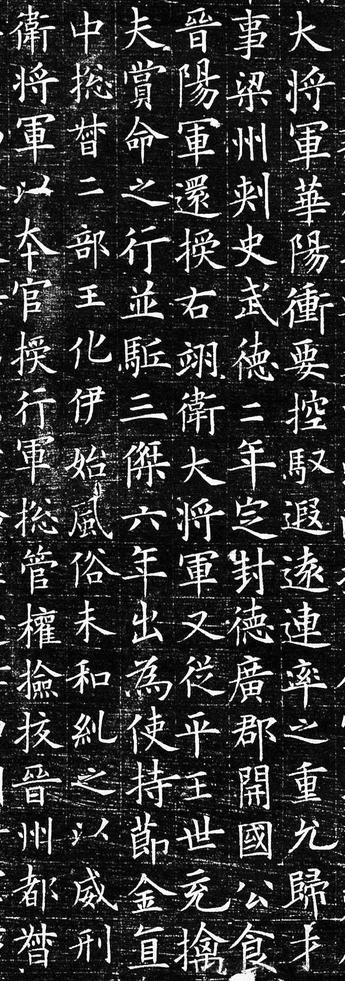 大將軍華陽衝要控馭遐遠連率之重允歸才
事梁州刾史武德二年㝎封德廣郡開國公食
晉陽軍還授右翊衛大將軍又從平王世充擒
夫賞命之行並駈三傑六年出為使持節金
中捴督二部王化伊始風俗未和糺之以威刑
衛將軍以夲官授行軍捴管權撿挍晉州都督